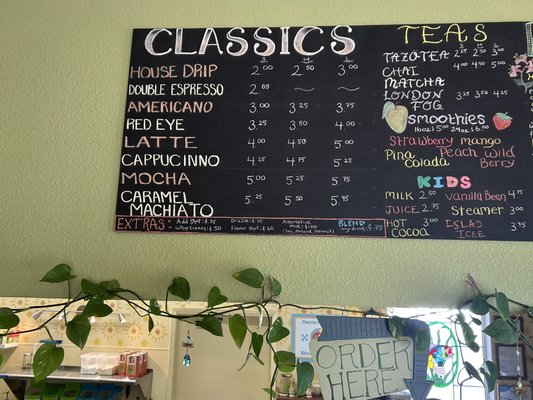 CLASSICS
S M L
HOUSE DRIP 2.00 2.50 3.00
DOUBLE ESPRESSO 2.85 ~ ~
AMERICANO 3.00 3.25 3.75
RED EYE 3.25 3.50 4.00
LATTE 4.00 4.50 5.00
CAPPUCINNO 4.25 4.75 5.25
MOCHA 5.00 5.25 5.75
CARAMEL MACHIATO 5.25 5.50 5.95
EXTRAS
Add Shot
Whip Cream
Drizzle
Flavor Shot
Alternative milk
BLEND any drink
TEAS
S M L
TAZO TEA 2.25 2.50 3.00
CHAI 4.00 4.50 5.00
MATCHA
LONDON FOG 3.25 3.50 4.25
smoothies
16oz 5.00 24oz 6.00
Strawberry mango
Pina Colada Peach Wild Berry
KIDS
MILK 2.50 Vanilla Bean 4.75
JUICE 2.75 Steamer 3.00
HOT COCOA 3.00 ISLAS ICEE 3.75
ORDER
HERE